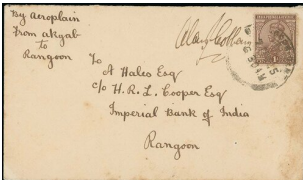 By Aeroplain
from akyab
to
Rangoon
To
A Hales Esq
c/o H. R. L. Cooper Esq
Imperial Bank of India
Rangoon